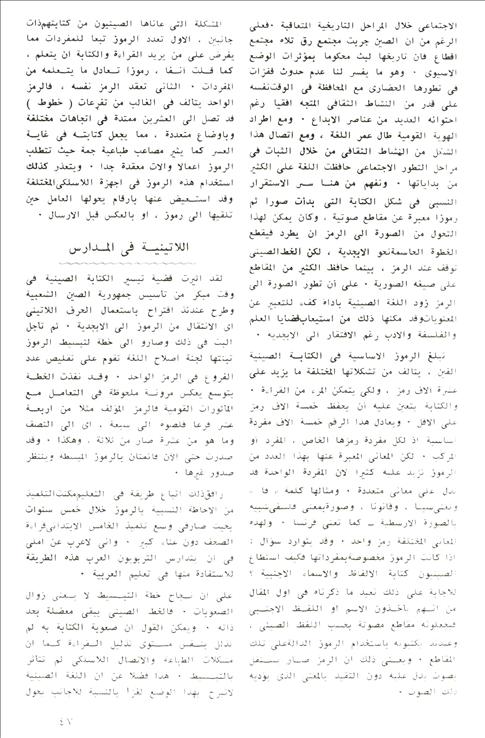 الاجتماعي خلال المراحل التاريخية المتعاقبة ٠ فعلى
الرغم من ان الصين جربت مجتمع رق تلاه مجتمع
اقطاع فان تاريخها ليث محكوما بمؤثرات الوضع
الاسيوي ٠ وهو ما يفسر لنا عدم حدوث قفزات
في تطورها الحضارى مع المحافظة فى الوقت نفسه
على قدر من النشاط الثقافي المتجه افقيا رغم
احتوائه العديد من عناصر الابداع ٠ ومع اطراد
الهوية القومية طال عمر اللغة ، ومع اتصال هذا
الشكل من النشاط الثقافي من خلال الثبات في
مراحل التطور الاجتماعي حافظت اللغة على الكثير
من بداياتها ٠ ونفهم من هنا سر الاستقرار
النسبي في شكل الكتابة التي بدأت صورا ثم
رموزا معبرة عن مقاطع صوتية ، وكان يمكن لهذا
التحول من الصورة الى الرمز ان يطرد فيقطع
الخطوة الحاسمة نحو الابجدية ، لكن الخط الصيني
توقف عند الرمز ، بينما حافظ الكثير من المقاطع
على صيغه الصورية ٠ على ان تطور الصورة الى
الرمز زود اللغة الصينية باداة كفء للتعبير عن
المعنويات وقد مكنها ذلك من استيعاب قضايا العلم
والفلسفة والادب رغم الافتقار الى الابجدية ٠
تبلغ الرموز الاساسية في الكتابة الصينية
الفين ، يتألف من تشكلاتها المختلفة ما يزيد على
عشرة الاف رمز ، ولكي يتمكن المرء من القراءة
والكتابة يتعين عليه ان يحفظ خمسة الاف رمز
على الاقل ٠ ويعادل هذا الرقم خمسة الاف مفردة
اساسية اذ لكل مفردة رمزها الخاص ، المفرد او
المركب ٠ لكن المعاني المعبرة عنها بهذا العدد من
الرموز تزيد عليه كثيرا لان المفردة الواحدة قد
تدل على معاني متعددة ٠ ومثالها كلمة ، فا ،
وتعني سينا ، وقانونا ، وصورة بمعنى فلسفي شبيه
بالصورة الارسطية ــ كما تعني فرنسا ٠ ولهذه
المعاني المختلفة رمز واحد ٠ وقد يتوارد سؤال :
اذا كانت الرموز مخصوصة بمفرداتها فكيف استطاع
الصينيون كتابة الالفاظ والاسماء الاجنبية ؟
للاجابة على ذلك نعيد ما ذكرناه في اول المقال
من انهم يأخذون الاسم او اللفظ الاجنبي
فيجعلونه مقاطع مصوتة بحسب اللفظ الصيني ،
وعندئذ يكتبونه باستخدام الرموز الدالة على تلك
المقاطع ٠ ويعني ذلك ان الرمز صار يستعمل
بصوت يدل عليه دون التقيد بالمعنى الذي يوديه
ذلك الصوت ٠
المشكلة التي عاناها الصينيون من كتابتهم ذات
جانبين ٠ الاول تعدد الرموز تبعا للمفردات مما
يفرض على من يريد القراءة والكتابة ان يتعلم ،
كما قلت آنفا ، رموزا تعادل ما يتعلمه من
المفردات ٠ الثاني تعقد الرمز نفسه ، فالرمز
الواحد يتألف في الغالب من تفرعات ( خطوط )
قد تصل الى العشرين ممتدة في اتجاهات مختلفة
وباوضاع متعددة ، مما يجعل كتابته في غاية
العسر كما يثير مصاعب طباعية جمة حيث تتطلب
الرموز اعمالا والات معقدة جدا ٠ ويتعذر كذلك
استخدام هذه الرموز في اجهزة اللاسلكي المختلفة
وقد استعيض عنها بارقام يحولها العامل حين
تلقيها الى رموز ، او بالعكس قبل الارسال ٠
اللاتينية في المدارس
لقد اثيرت قضية تيسير الكتابة الصينية في
وقت مبكر من تأسيس جمهورية الصين الشعبية
وطرح عندئذ اقتراح باستعمال الحرف اللاتيني
اي الانتقال من الرموز الى الابجدية ٠ ثم تأجل
البت في ذلك وصارو الى خطة لتبسيط الرموز
تبنتها لجنة اصلاح اللغة تقوم على تقليص عدد
الفروع في الرمز الواحد ٠ وقد نفذت الخطة
بتوسع يعكس مرونة ملحوظة في التعامل مع
المأثورات القومية فالرمز المؤلف مثلا من اربعة
عشر فرعا قلصوه الى سبعة ، اي الى النصف
وما هو من عشرة صار من ثلاثة ، وهكذا ٠ وقد
صدرت حتى الان قائمتان بالرموز المبسطة وينتظر
صدور غيرها ٠
رافق ذلك اتباع طريقة في التعليم مكنت التلميذ
من الاحاطة النسبية بالرموز خلال خمس سنوات
بحيث صار في وسع تلميذ الخامس الابتدائي قراءة
الصحف دون عناء كبير ٠ واني لاعرب عن املي
في ان يتدارس التربويون العرب هذه الطريقة
للاستفادة منها في تعليم العربية ٠
على ان نجاح خطة التبسيط لا يعني زوال
الصعوبات ٠ فالخط الصيني يبقى معضلة بحد
ذاته ٠ ويمكن القول ان صعوبة الكتابة به لم
تذلل بنفس مستوى تذليل القراءة كما ان
مشكلات الطباعة والاتصال اللاسلكي لم تتأثر
بالتبسيط ٠ هذا فضلا عن ان اللغة الصينية
لا تبرح بهذا الوضع لغزا بالنسبة للاجانب يحول
٤٧